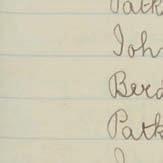 Patk
Joh
Berd
Patk